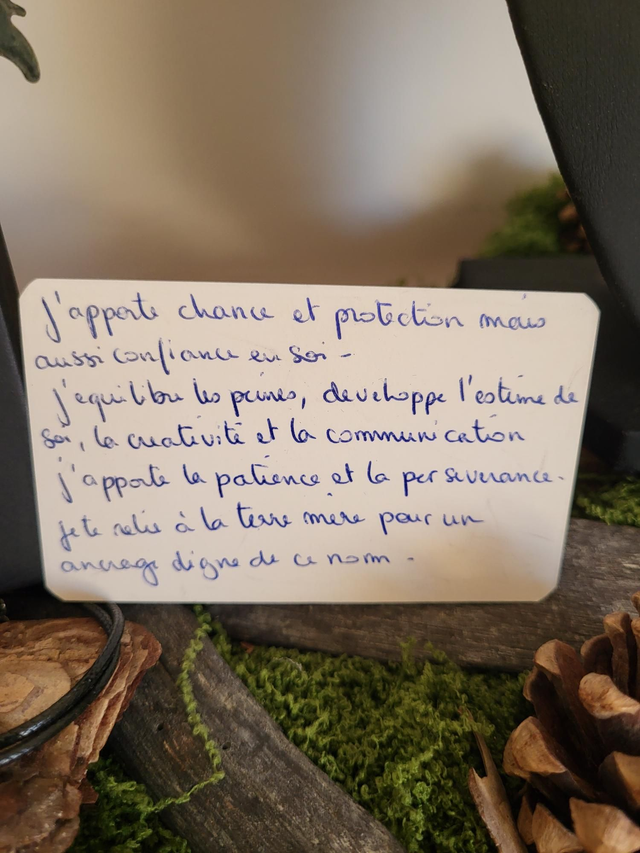 J'apporte chance et protection mais
aussi confiance en soi -
j'equilibre les peines, developpe l'estime de
soi, la creativité et la communication
j'apporte la patience et la perseverance.
je te relie à la terre mère pour un
ancrage digne de ce nom -